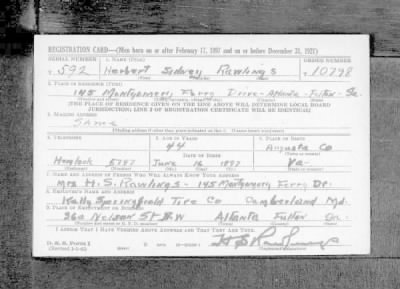 REGISTRATION CARD—(Men born on or after February 17, 1897 and on or before December 31, 1921)
SERIAL NUMBER 1. NAME (Print) ORDER NUMBER
592 Herbert Sidney Rawlings 10798
(First) (Middle) (Last)
2. PLACE OF RESIDENCE (Print)
145 Montgomery Ferry Drive - Atlanta - Fulton - Ga
[THE PLACE OF RESIDENCE GIVEN ON THE LINE ABOVE WILL DETERMINE LOCAL BOARD
JURISDICTION; LINE 2 OF REGISTRATION CERTIFICATE WILL BE IDENTICAL]
3. MAILING ADDRESS
Same
[Mailing address if other than place indicated on line 2. If same insert word same]
4. TELEPHONE 5. AGE IN YEARS 6. PLACE OF BIRTH
44 Augusta Co
DATE OF BIRTH
Hemlock 5787 June 16 1897 Va-
7. NAME AND ADDRESS OF PERSON WHO WILL ALWAYS KNOW YOUR ADDRESS
Mrs H.S. Rawlings - 145 Montgomery Ferry Dr.
8. EMPLOYER'S NAME AND ADDRESS
Kelly Springfield Tire Co Cumberland Md.
9. PLACE OF EMPLOYMENT OR BUSINESS
360 Nelson St SW Atlanta Fulton Ga.
I AFFIRM THAT I HAVE VERIFIED ABOVE ANSWERS AND THAT THEY ARE TRUE.
D. S. S. Form 1
H S Rawlings